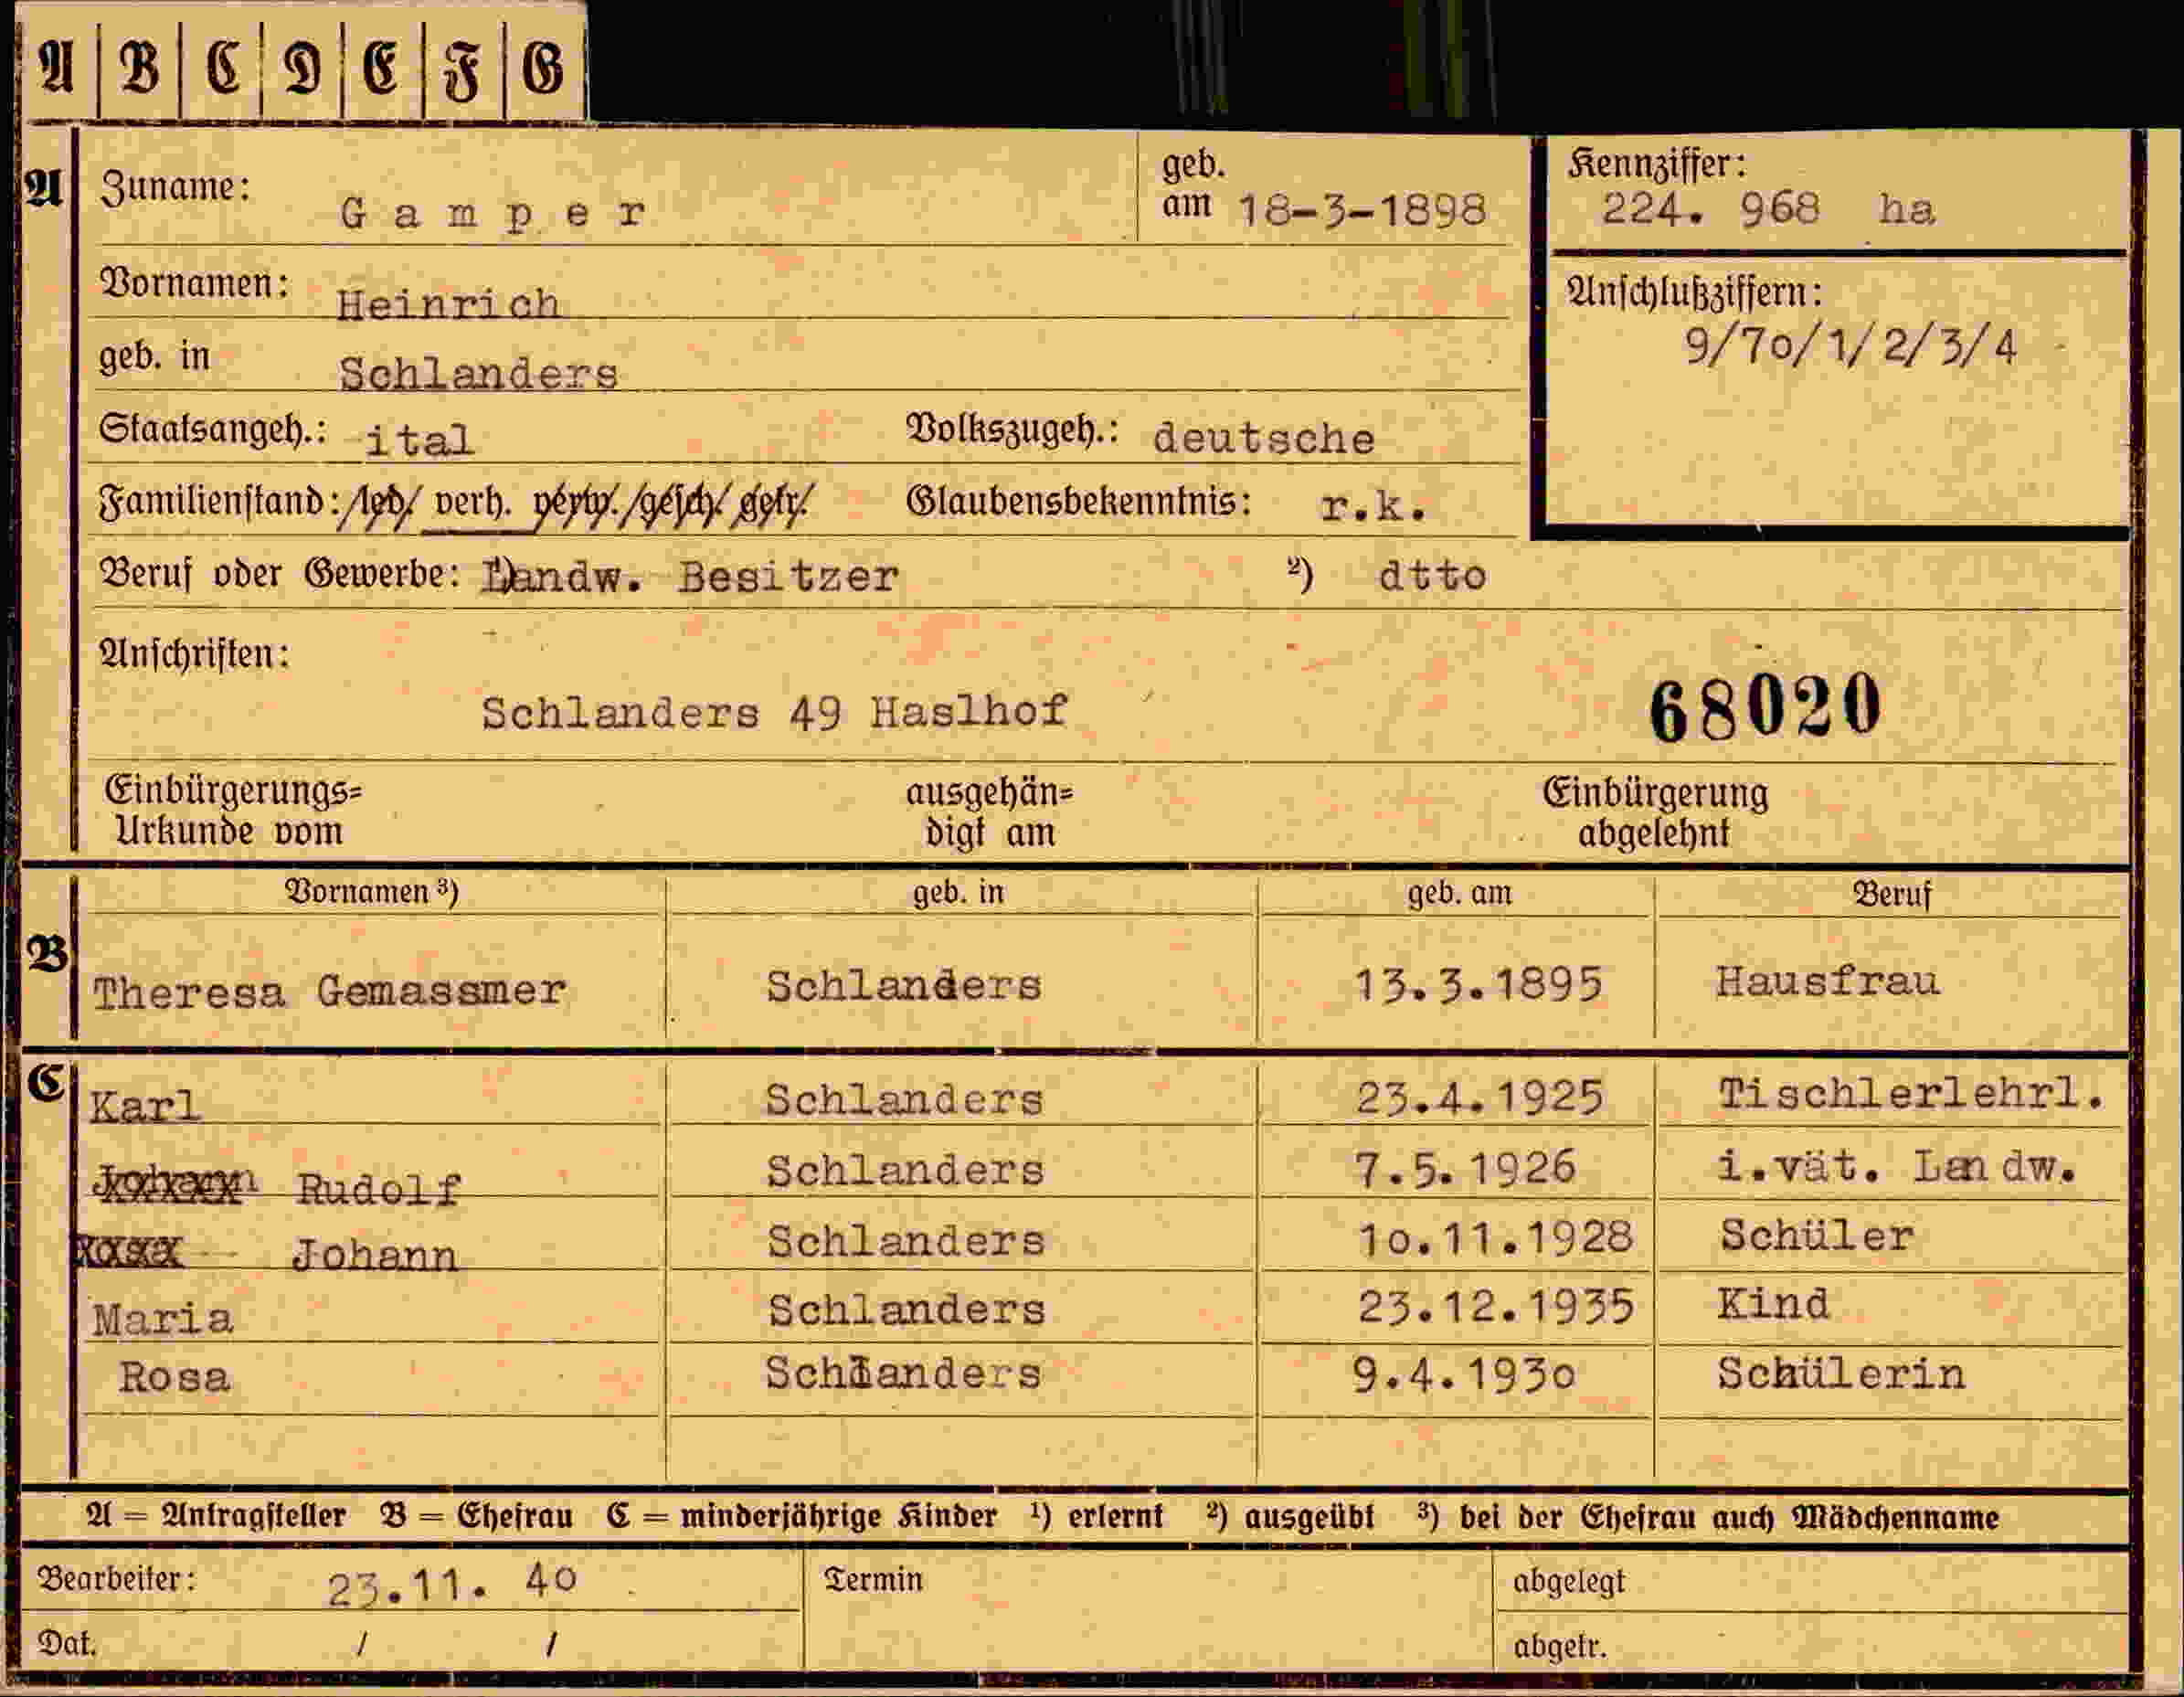 A B C D E F G
A Zuname: Gamper geb. am 18-3-1898 Kennziffer: 224. 968 ha
Vornamen: Heinrich Anschlußziffern:
9/7o/1/2/3/4
geb. in Schlanders
Staatsangeh.: ital Volkszugeh.: deutsche
Familienstand: /led/ verh. verw./gesch/ getr. Glaubensbekenntnis: r.k.
Beruf oder Gewerbe: Landw. Besitzer ²) dtto
Anschriften:
Schlanders 49 Haslhof 68020
Einbürgerungs= ausgehän= Einbürgerung
Urkunde vom digt am abgelehnt
Vornamen ³) geb. in geb. am Beruf
B Theresa Gemassmer Schlanders 13.3.1895 Hausfrau
C Karl Schlanders 23.4.1925 Tischlerlehrl.
Johann Rudolf Schlanders 7.5.1926 i.vät. Landw.
Rosa Johann Schlanders 1o.11.1928 Schüler
Maria Schlanders 23.12.1935 Kind
Rosa Schlanders 9.4.193o Schülerin
A = Antragsteller B = Ehefrau C = minderjährige Kinder ¹) erlernt ²) ausgeübt ³) bei der Ehefrau auch Mädchenname
Bearbeiter: 23.11. 4o Termin abgelegt
Dat. / / abgetr.